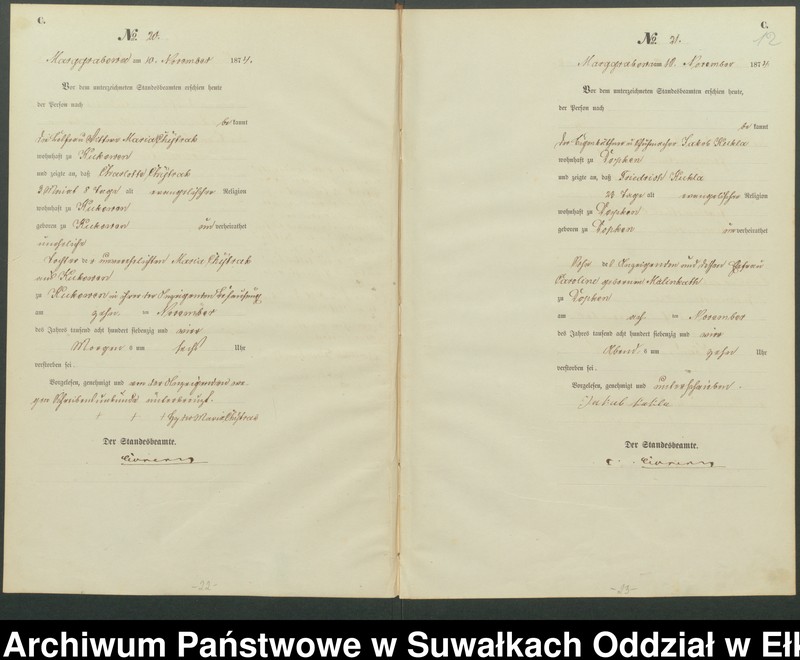 C.
№ 20.
Marggrabowa am 10. November 1874.
Vor dem unterzeichneten Standesbeamten erschien heute
der Person nach
be kannt
die Wittwe Maria
wohnhaft zu Kukowen
und zeigte an, daß Charlotte
3 Monat 8 Tage alt evangelischer Religion
wohnhaft zu Kukowen
geboren zu Kukowen un verheirathet
uneheliche
Tochter der unverehelichten Maria
aus Kukowen
zu Kukowen in ihrer der Anzeigenden Behausung
am zehn ten November
des Jahres tausend acht hundert siebenzig und vier
Morgen s um sechs Uhr
verstorben sei.
Vorgelesen, genehmigt und von der Anzeigenden we-
gen Schreibensunkunde unterkreuzt.
+ + + Hz. der Maria
Der Standesbeamte.
C.
12
№ 21.
Marggrabowa am 10. November 1874.
Vor dem unterzeichneten Standesbeamten erschien heute,
der Person nach
be kannt
der Eigenkäthner und Schuhmacher Jakob
wohnhaft zu Dopken
und zeigte an, daß Friedrich
24 Tage alt evangelischer Religion
wohnhaft zu Dopken
geboren zu Dopken un verheirathet
Sohn des Anzeigenden und dessen Ehefrau
Caroline geborenen
zu Dopken
am ach ten November
des Jahres tausend acht hundert siebenzig und vier
Abend s um zehn Uhr
verstorben sei.
Vorgelesen, genehmigt und unterschrieben.
Jakob
Der Standesbeamte.
-22-
-23-
Archiwum Państwowe w Suwałkach Oddział w Ełk